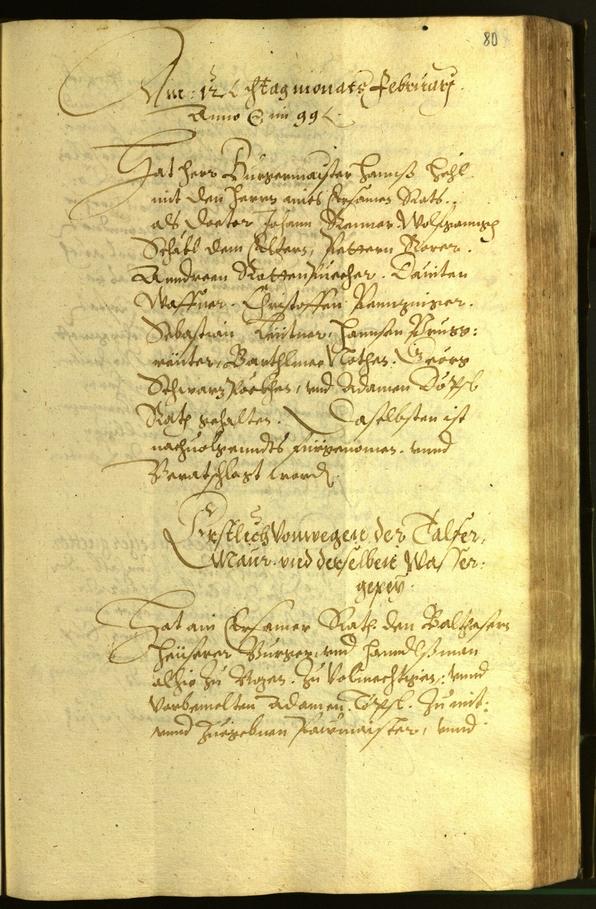 80
Am: 12 t[en] tag monats Februarÿ.
Anno Etc im 99 t[en].
Hat herr Burgermaister Hannß
mit den Herrn aines Ersamen Rats.,
als Doctor Johann Renner Wolfganngen
Schatl dem Eltern, Pettern Rorer.
Anndreen Rottenpuecher. Dauiten
Waffner. Christoffen
Sebastian Hannsen Prugg:
reuter, Barthlmee Georg
Schwarz vnd Adamen Töpsl
Rath gehalten. Daselbsten ist
nachuolgenndts fürgenomen. vnnd
Beratschlagt word[en].
Erstlich Vonwegen der Talfer,
Maur. vnd derselben Wasser:
gepeÿ.
Hat ain Ersamer Rath den Balthasern
Heüserer Burger vnd Hanndlßman
alhie Zu Bozen. Zu Volmechtigen: vnnd
Vorbemelten Adamen Töpsl. Zu mit:
vnnd Zuegebnen Pawmaister, vnnd